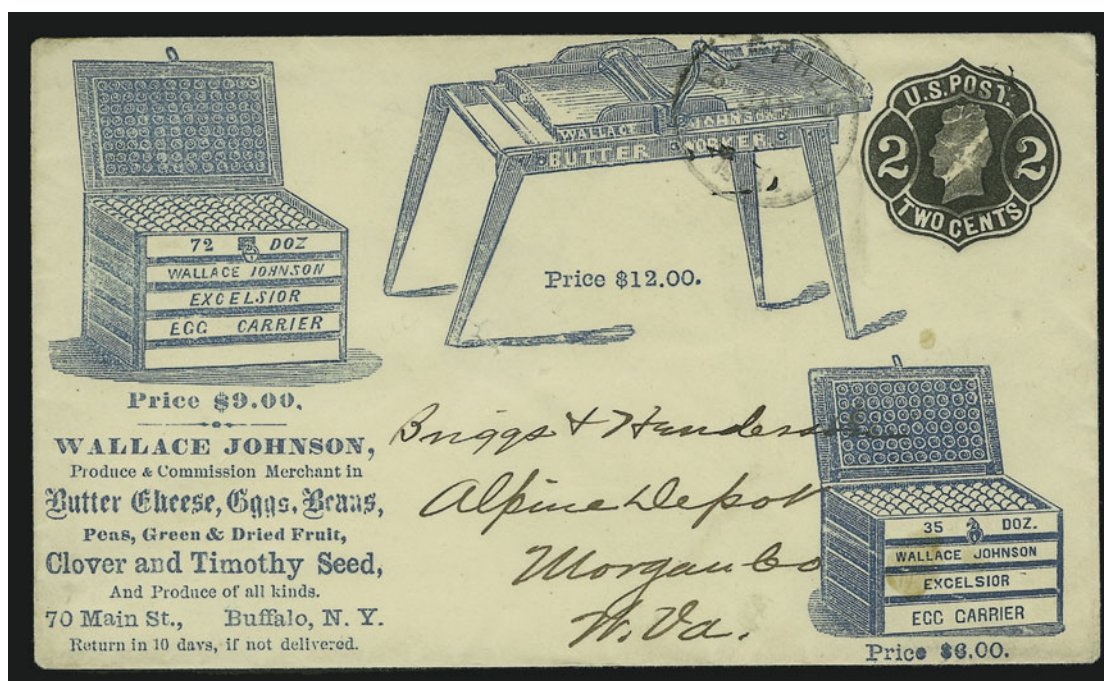 72 DOZ
WALLACE JOHNSON
EXCELSIOR
EGG CARRIER
Price $9.00.
WALLACE JOHNSON,
Produce & Commission Merchant in
Butter Cheese, Eggs, Beans,
Peas, Green & Dried Fruit,
Clover and Timothy Seed,
And Produce of all kinds.
70 Main St., Buffalo, N. Y.
Return in 10 days, if not delivered.
WALLACE JOHNSON
BUTTER WORKER
Price $12.00.
U.S. POST.
2 2
TWO CENTS
Briggs &
Alpine Depot
Morgan Co
W. Va.
35 DOZ.
WALLACE JOHNSON
EXCELSIOR
EGG CARRIER
Price $6.00.